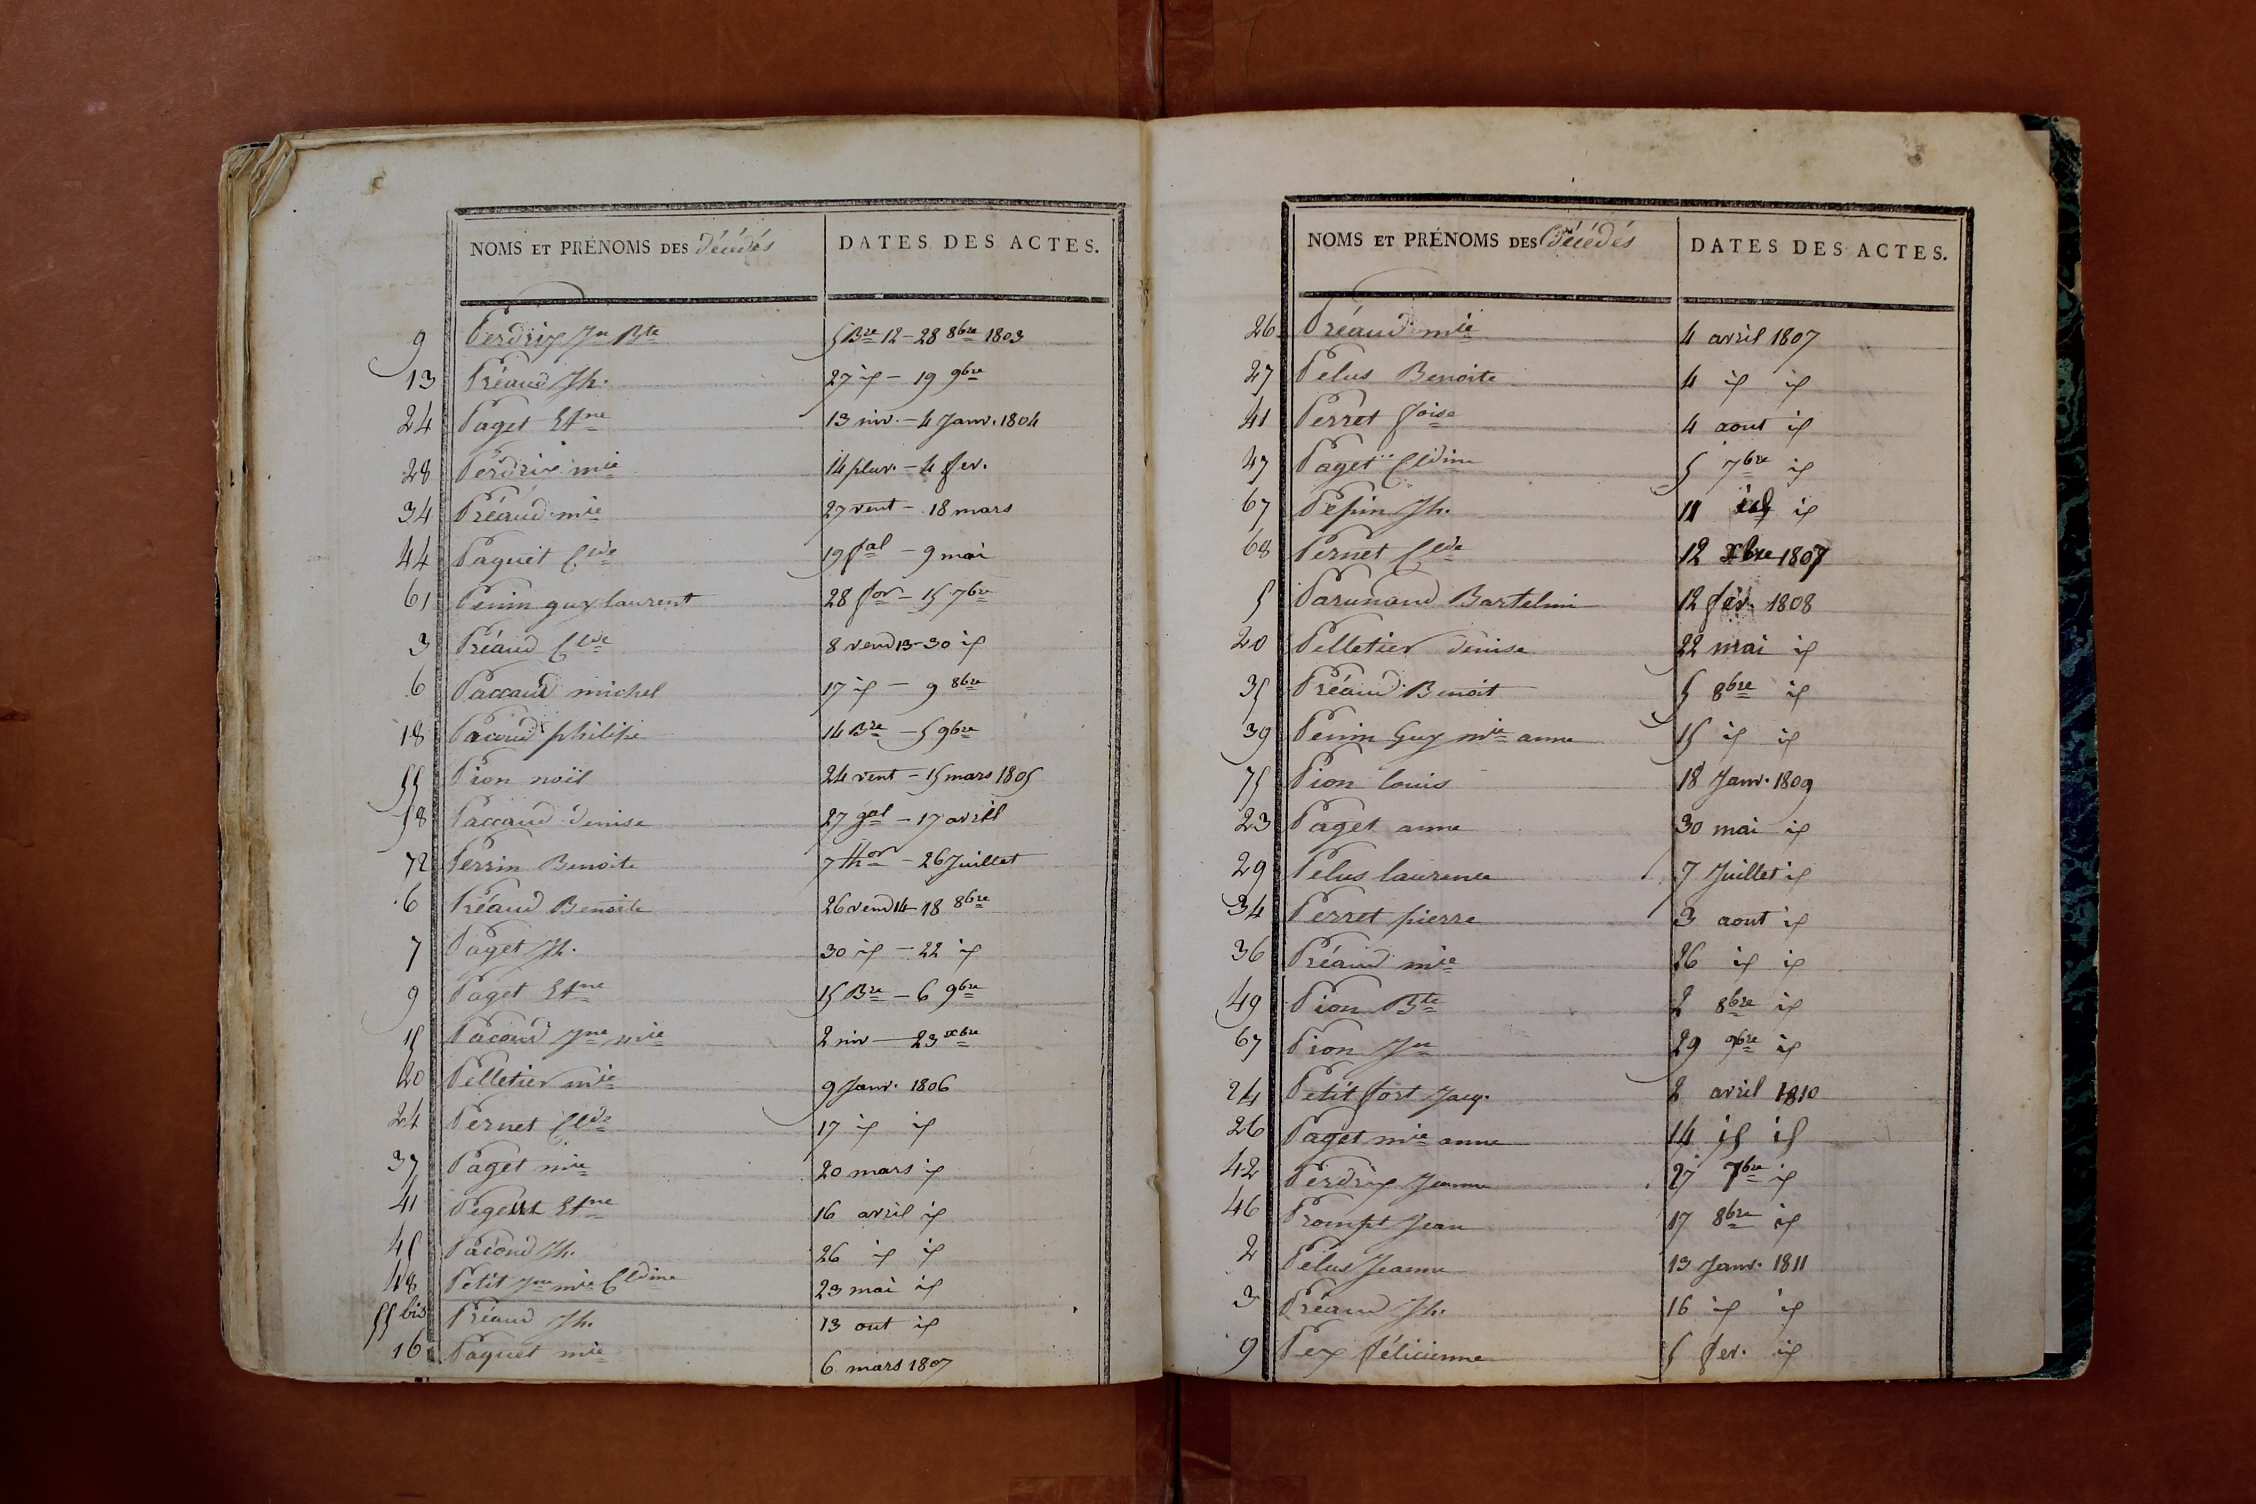 NOMS ET PRÉNOMS DES Décédés DATES DES ACTES.
9 Perdrix Jn Bte 5 Bre 12 - 28 8bre 1803
13 Préaud Jh. 27 id - 19 9bre
24 Paget Etne 13 niv. - 4 Janv. 1804
28 Perdrix mie 14 pluv. - 4 fev.
34 Préaud mie 27 vent - 18 mars
44 Paquet Clde 19 fal - 9 mai
61 Penin guy laurent 28 for - 15 7bre
3 Préaud Clde 8 vend 13 - 30 id
6 Paccaud michel 17 id - 9 8bre
18 Pacoud philipe 14 Bre - 5 9bre
55 Pion noël 24 vent - 15 mars 1805
58 Paccaud denise 27 gal - 17 avril
72 Perrin Benoite 7 thor - 26 Juillet
6 Préaud Benoite 26 vend 14 - 18 8bre
7 Paget Jh. 30 id - 22 id
9 Paget Etne 15 Bre - 6 9bre
15 Pacoud Jne mie 2 niv - 23 xbre
20 Pelletier mie 9 Janv. 1806
24 Pernet Clde 17 id id
37 Paget mie 20 mars id
41 Etne 16 avril id
45 Pacoud Jh. 26 id id
48 Petit Jne mie Cldine 23 mai id
55 bis Préaud Jh. 13 out id
16 Paquet mie 6 mars 1807
NOMS ET PRÉNOMS DES Décédés DATES DES ACTES.
26 Préaud mie 4 avril 1807
27 Pelus Benoite 4 id id
41 Perret foise 4 aout id
47 Paget Cldine 5 7bre id
67 Pepin Jh. 11 id id
68 Pernet Clde 12 xbre 1807
5 Bartelmi 12 fev. 1808
20 Pelletier denise 22 mai id
35 Préaud Benoit 5 8bre id
39 Penin Guy mie anne 15 id id
75 Pion louis 18 Janv. 1809
23 Paget anne 30 mai id
29 Pelus laurence 7 Juillet id
34 Perret pierre 3 aout id
36 Préaud mie 26 id id
49 Pion Bte 2 8bre id
67 Pion Jn 29 9bre id
24 Petit fort Jacq. 2 avril 1810
26 Paget mie anne 14 id id
42 Perdrix Jeanne 27 7bre id
46 Prompt Jean 17 8bre id
2 Pelus Jeanne 13 Janv. 1811
3 Préaud Jh. 16 id id
9 Pex félicienne 5 fev. id